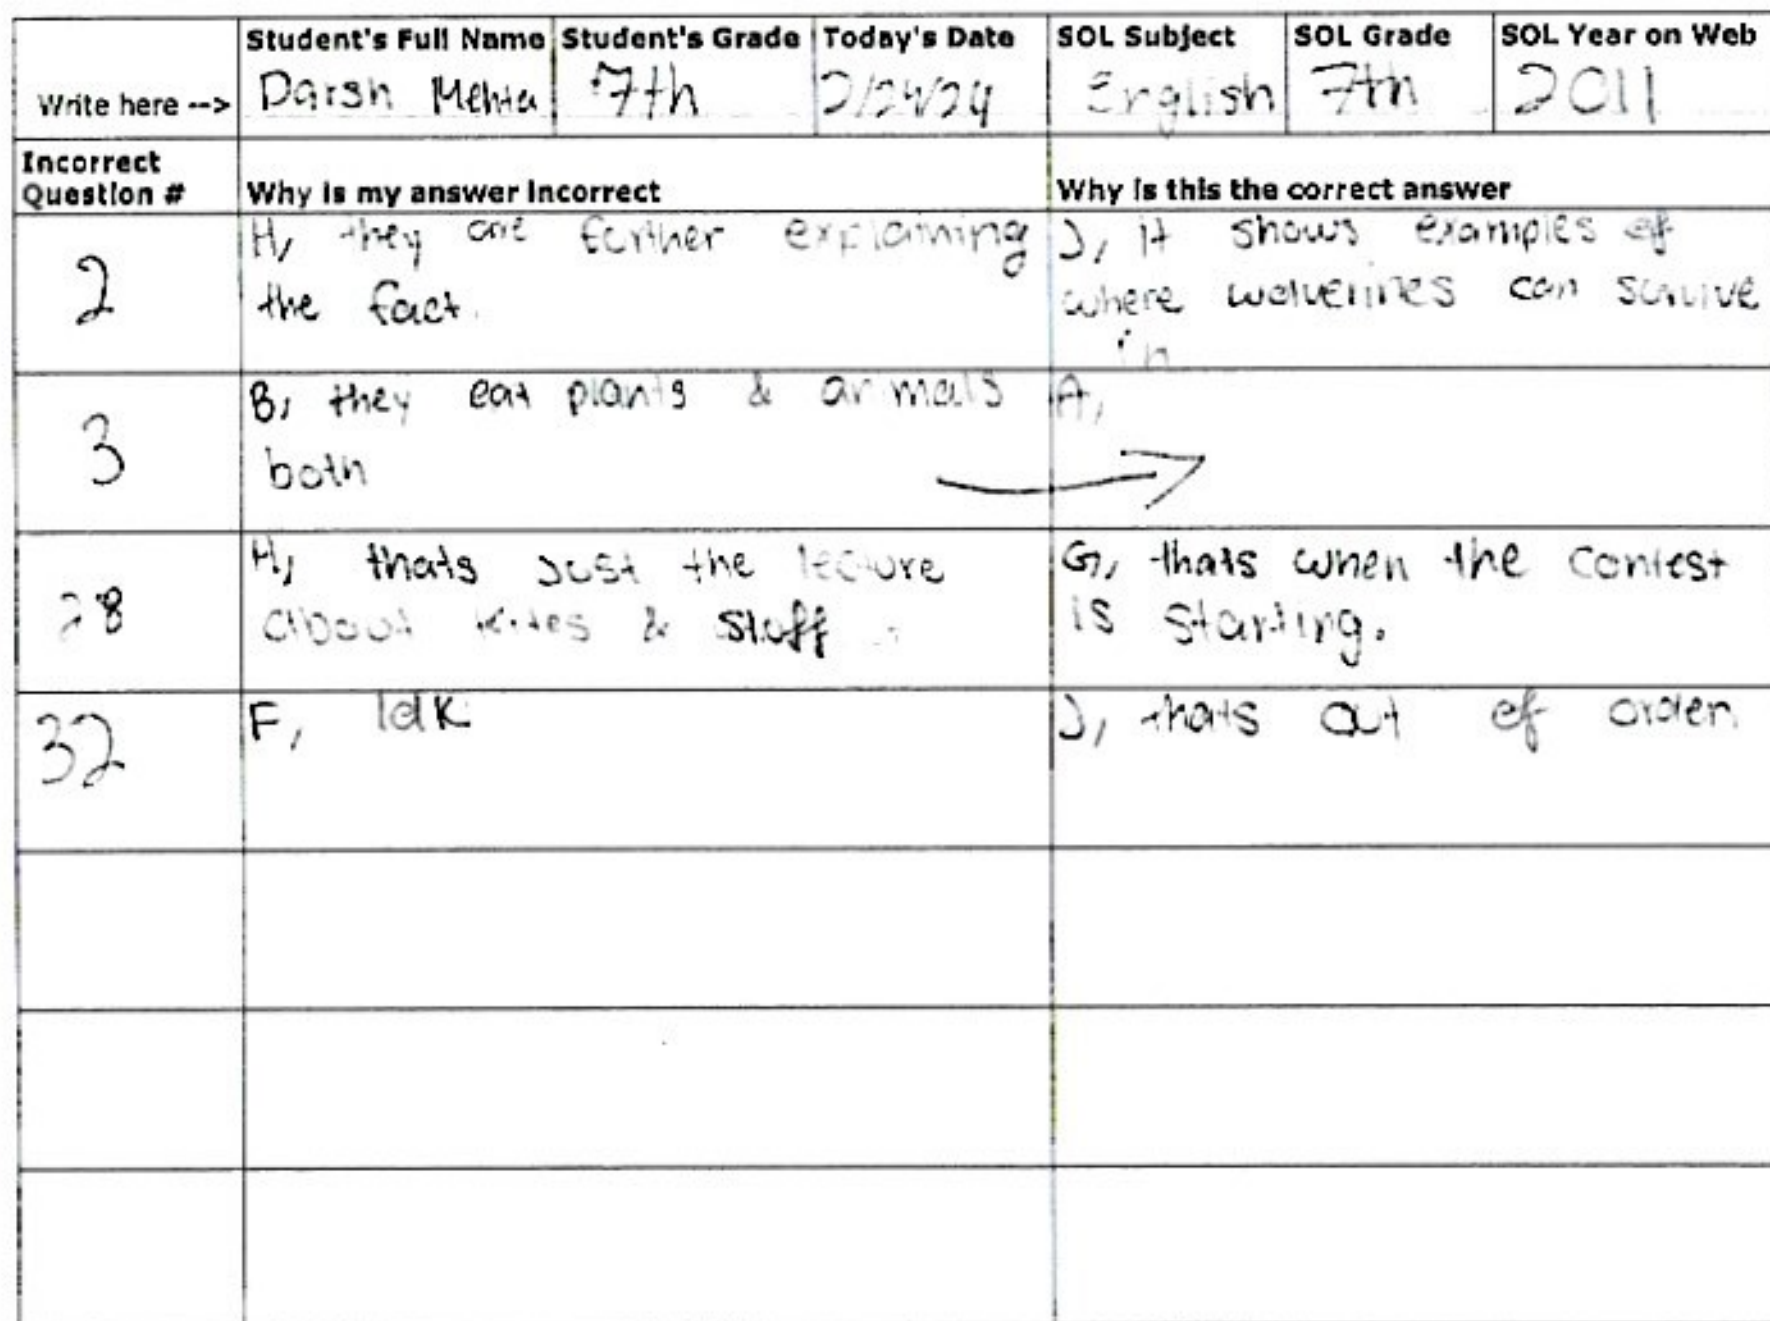 Student's Full Name Student's Grade Today's Date SOL Subject SOL Grade SOL Year on Web
Write here --> Darsh Mehta 7th 2/24/24 English 7th 2011
Incorrect
Question # Why is my answer incorrect Why is this the correct answer
2 H, they are further explaining
the fact.
J, it shows examples of
where wolverines can survive
in
3 B, they eat plants & animals
both
A,
28 H, thats just the lecture
about kites & stuff
G, thats when the contest
is starting.
32 F, Idk
J, thats out of order.